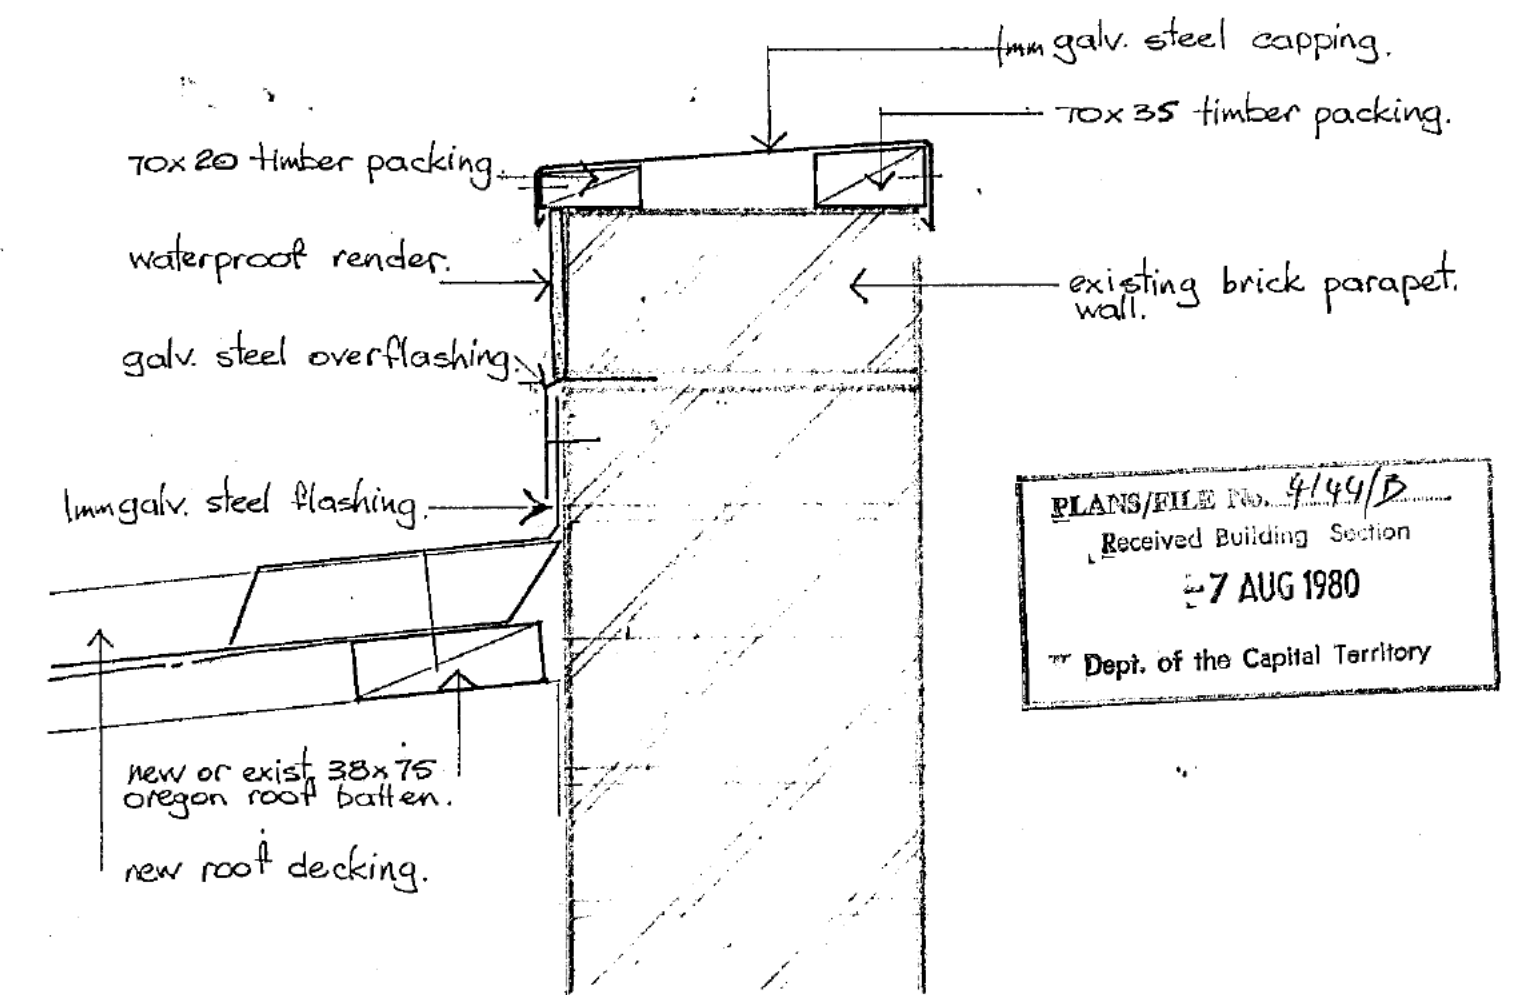 1mm galv. steel capping.
70x35 timber packing.
70x20 timber packing.
waterproof render.
existing brick parapet.
wall.
galv. steel overflashing.
1mm galv. steel flashing.
PLANS/FILE No. 4144/B
Received Building Section
-7 AUG 1980
Dept. of the Capital Territory
new or exist. 38x75
oregon roof batten.
new roof decking.